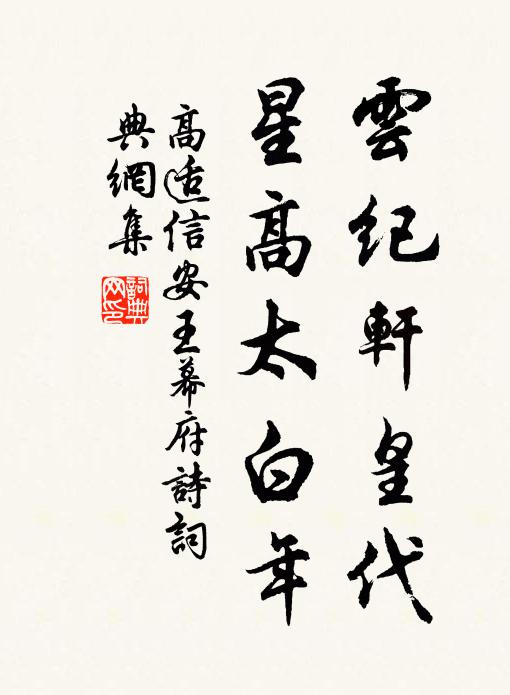 雲紀軒皇代
星高太白年
高適信安王幕府詩詞
典網集
詞典
网印